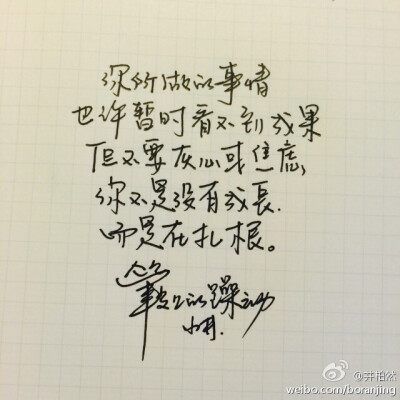 你所做的事情
也许暂时看不到成果
但不要灰心或焦虑,
你不是没有成長.
而是在扎根。
的躁动
小井.
@井柏然
weibo.com/boranjing